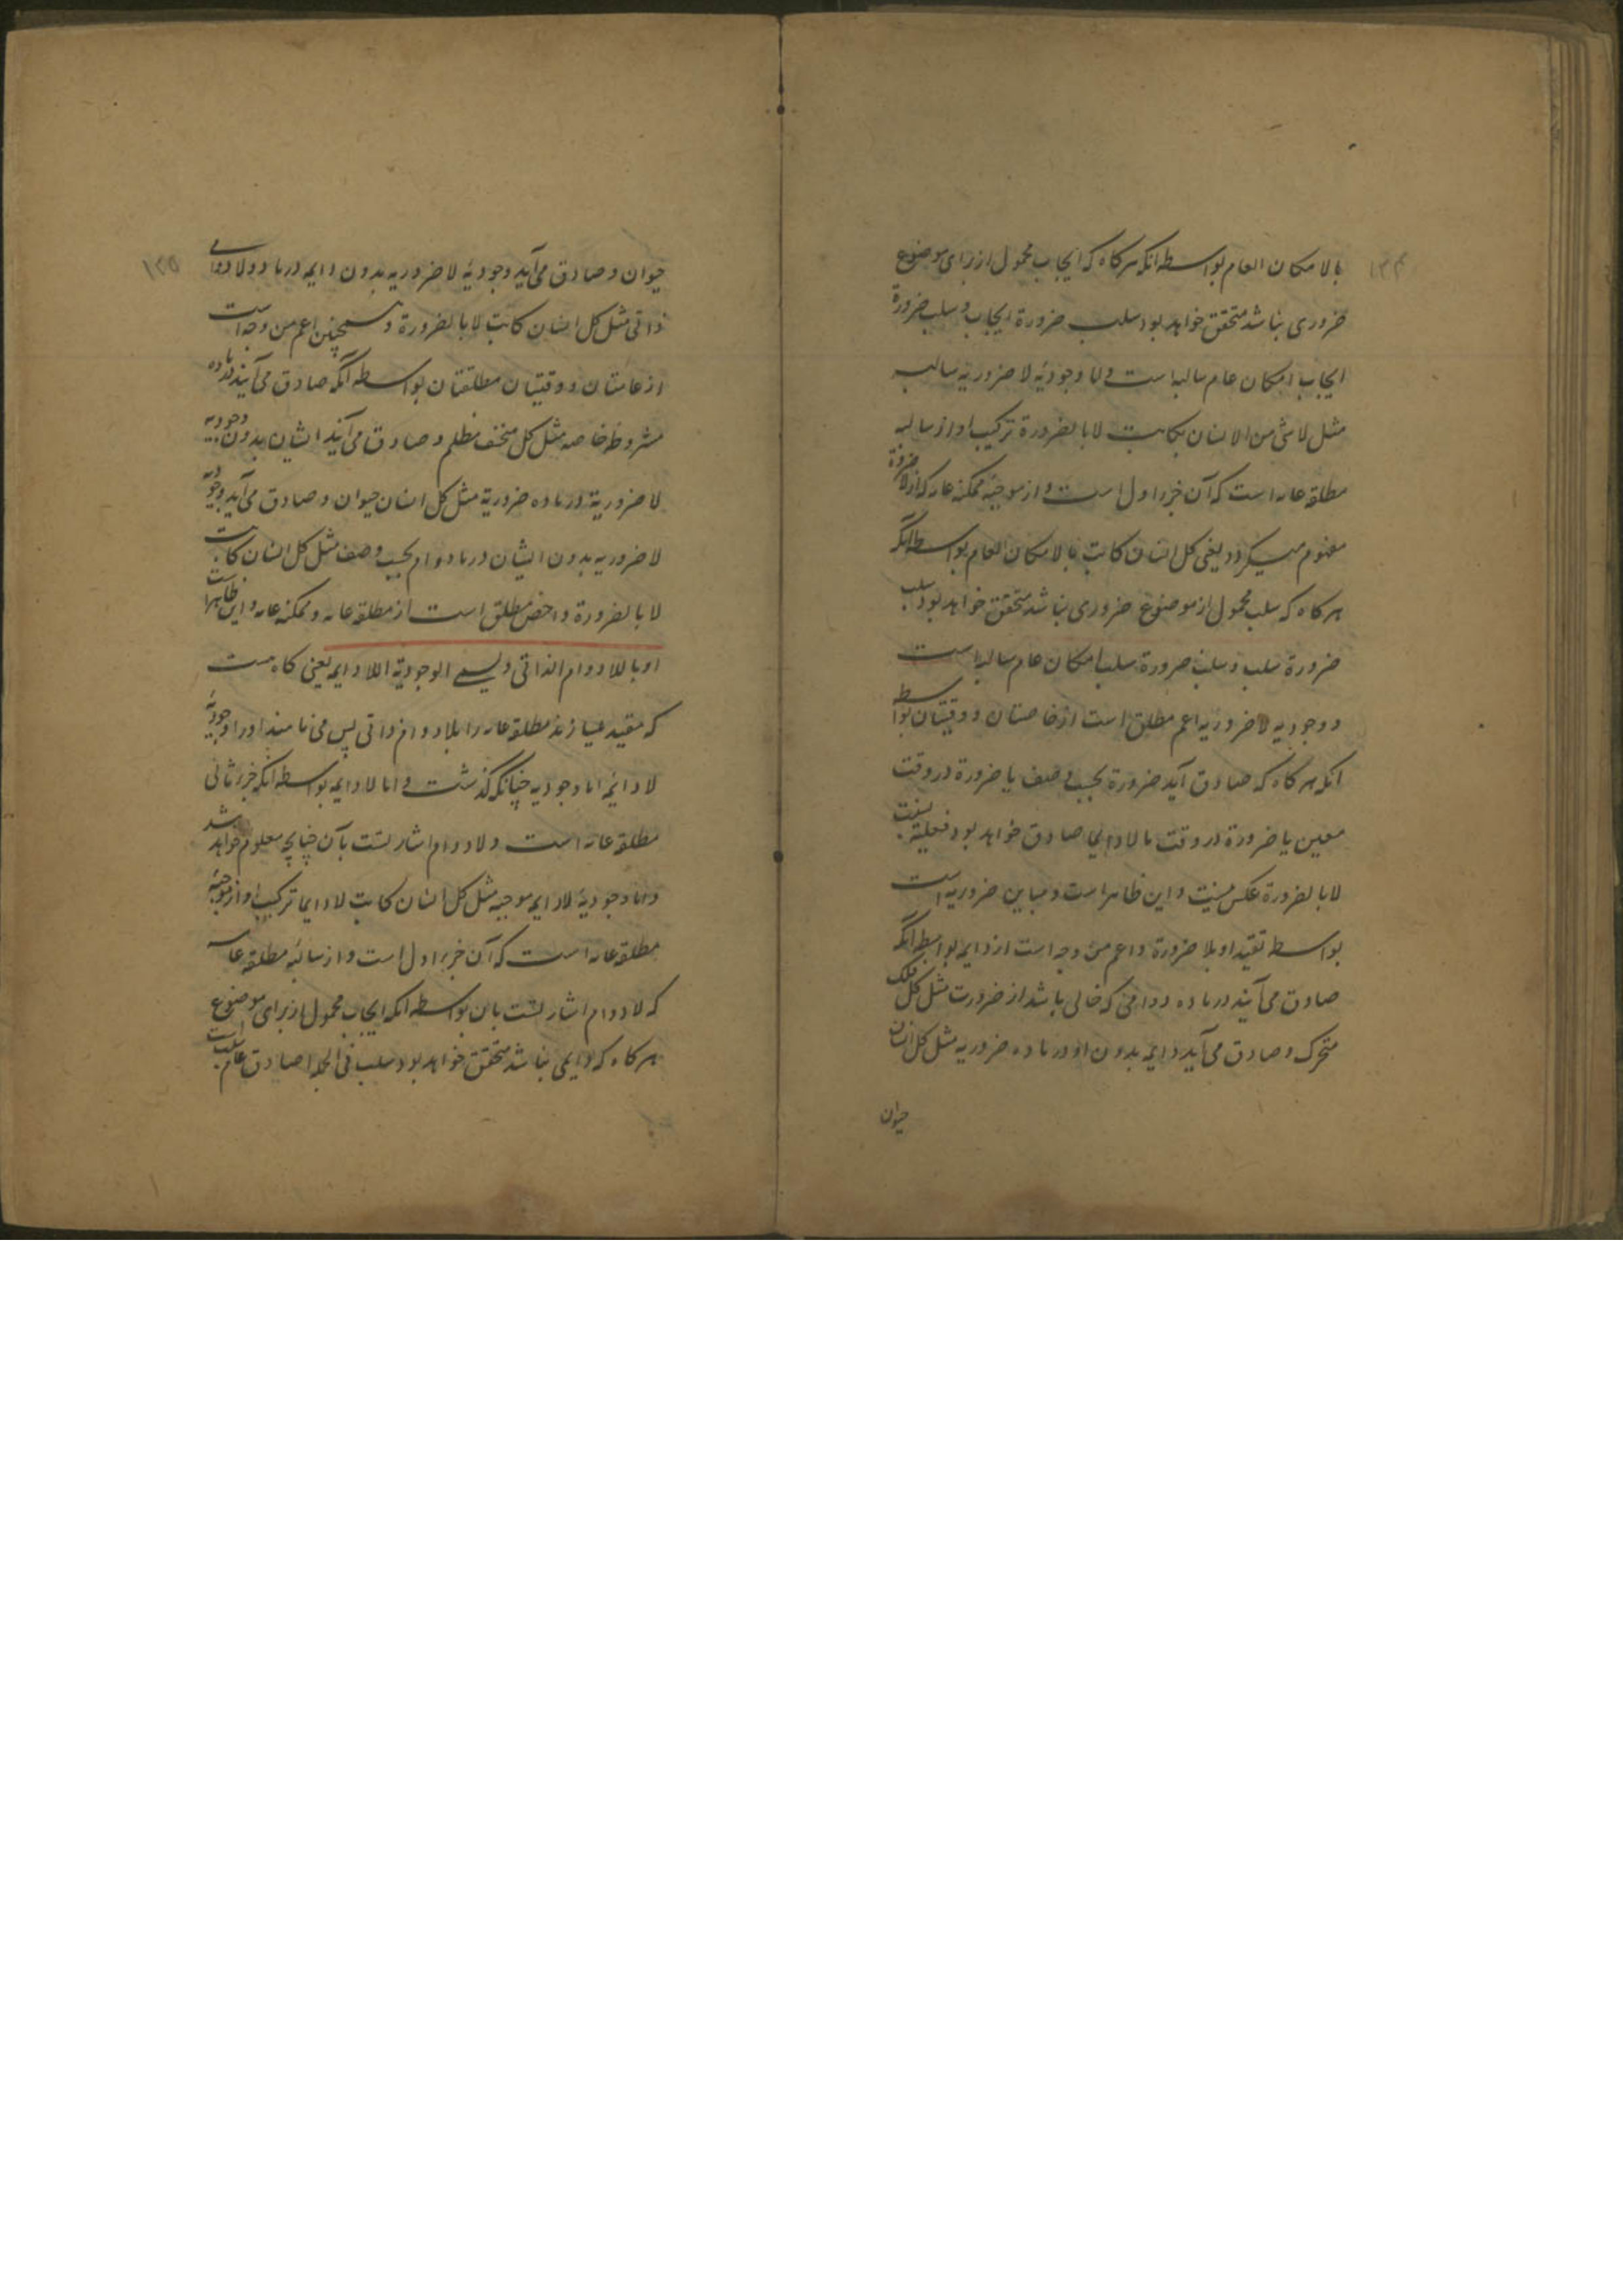 ۱۳۴
بالامکان العام بواسطه انکه هرکاه که ایجاب محمول از برای موضوع
ضروری نباشد متحقق خواهد بود سلب ضرورة ایجاب و سلب ضرورة
ایجاب امکان عام سالبه است و اما وجودیۀ لا ضروریه سالبه
مثل لاشی من الانسان بکاتب لا بالضرورة ترکیب او از سالبه
مطلقه عامه است که آن جزء اول است و از موجبه ممکنه عامه که از لا ضرورة
مفهوم میکردد یعنی کل انسان کاتب بالامکان العام بواسطه آنکه
هرکاه که سلب محمول از موضوع ضروری نباشد متحقق خواهد بود سلب
ضرورة سلب و سلب ضرورة سلب امکان عام سالبه است
و وجودیه لا ضروریه اعم مطلق است از خاصتان و وقتیتان بواسطه
انکه هرکاه که صادق آید ضرورة بحسب وصف یا ضرورة در وقت
معین یا ضرورة در وقت ما لا دایما صادق خواهد بود فعلیة نسبت
لا بالضرورة عکس نیست و این ظاهر است و مباین ضروریه است
بواسطه تقید او بلا ضرورة و اعم من وجه است از دایمه بواسطه آنکه
صادق می آیند در ماده دوامی که خالی باشد از ضرورت مثل کل فلک
متحرک و صادق می آید دایمه بدون او در ماده ضروریه مثل کل انسان
حیوان
۱۳۵
حیوان و صادق می آید وجودیۀ لا ضروریه بدون دایمه در ماده لا دوامی
ذاتی مثل کل انسان کاتب لا بالضرورة و همچنین اعم من وجه است
از عامتان و وقتیتان مطلقتان بواسطه آنکه صادق می آیند در ماده
مشروطۀ خاصه مثل کل منخسف مظلم و صادق می آیند ایشان بدون وجودیه
لا ضروریة در ماده ضروریة مثل کل انسان حیوان و صادق می آید وجودیۀ
لا ضروریه بدون ایشان در ماده دوام بحسب وصف مثل کل انسان کاتب
لا بالضرورة و اخص مطلق است از مطلقه عامه و ممکنه عامه و این ظاهر است
او باللادوام الذاتی ویسمی الوجودیة اللادایمه یعنی کاه هست
که مقید میسازند مطلقه عامه را بلا دوام ذاتی پس می نامند او را وجودیۀ
لا دایمه اما وجودیه چنانکه گذشت و اما لا دایمه بواسطه انکه جزء ثانی
مطلقه عامه است و لا دوام اشارتست بآن چنانچه معلوم خواهد شد
و اما وجودیۀ لا دایمه موجبه مثل کل انسان کاتب لا دایما ترکیب او از موجبۀ
مطلقه عامه است که آن جزء اول است و از سالبه مطلقه عامه
که لا دوام اشارتست بان بواسطه انکه ایجاب محمول از برای موضوع
هرکاه که دایمی نباشد متحقق خواهد بود سلب فی الجمله